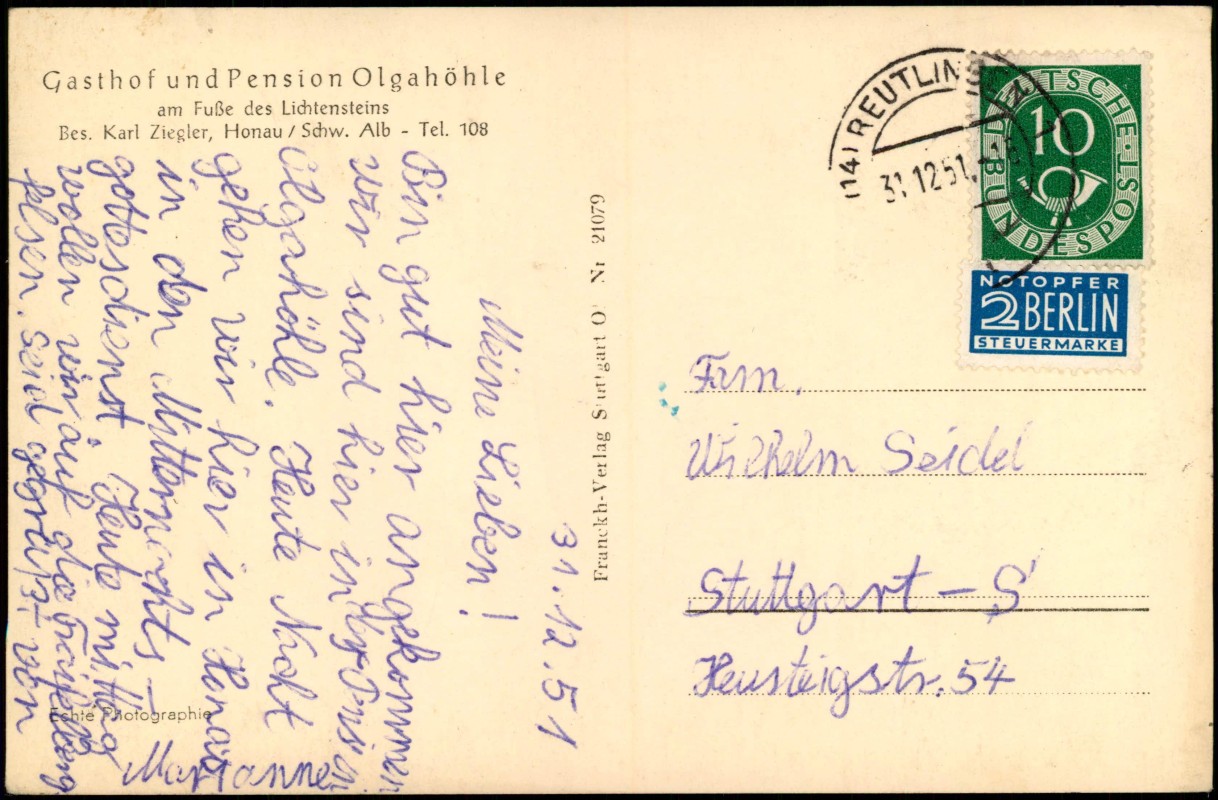 Gasthof und Pension Olgahöhle
am Fuße des Lichtensteins
Bes. Karl Ziegler, Honau / Schw. Alb - Tel. 108
31.12.51
Meine Lieben!
Bin gut hier angekommen
wir sind hier in Pension
Olgahöhle. Heute Nacht
gehen wir hier in Honau
in den Mitternachts-
gottesdienst Heute mittag
wollen wir auf die
felsen. Seid gegrüßt von
Marianne
Echte Photographie
Franckh-Verlag Stuttgart O Nr 21079
(14) REUTLINGEN
31.12.51
DEUTSCHE BUNDESPOST
10
NOTOPFER
2 BERLIN
STEUERMARKE
Fam.
Wilhelm Seidel
Stuttgart-S
Heusteigstr. 54